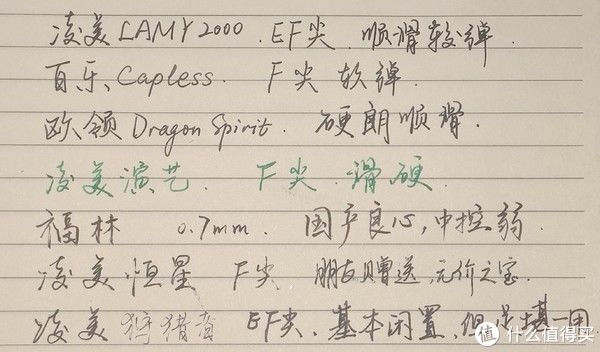 凌美 LAMY 2000. EF尖. 顺滑较弹.
百乐 Capless. F尖 软弹.
欧领 Dragon Spirit. 硬朗顺滑.
凌美演艺. F尖. 滑硬.
福林 0.7mm. 国产良心,中控弱.
凌美恒星 F尖 朋友赠送,无价之宝.
凌美 狩猎者 EF尖. 基本闲置,但
值 什么值得买